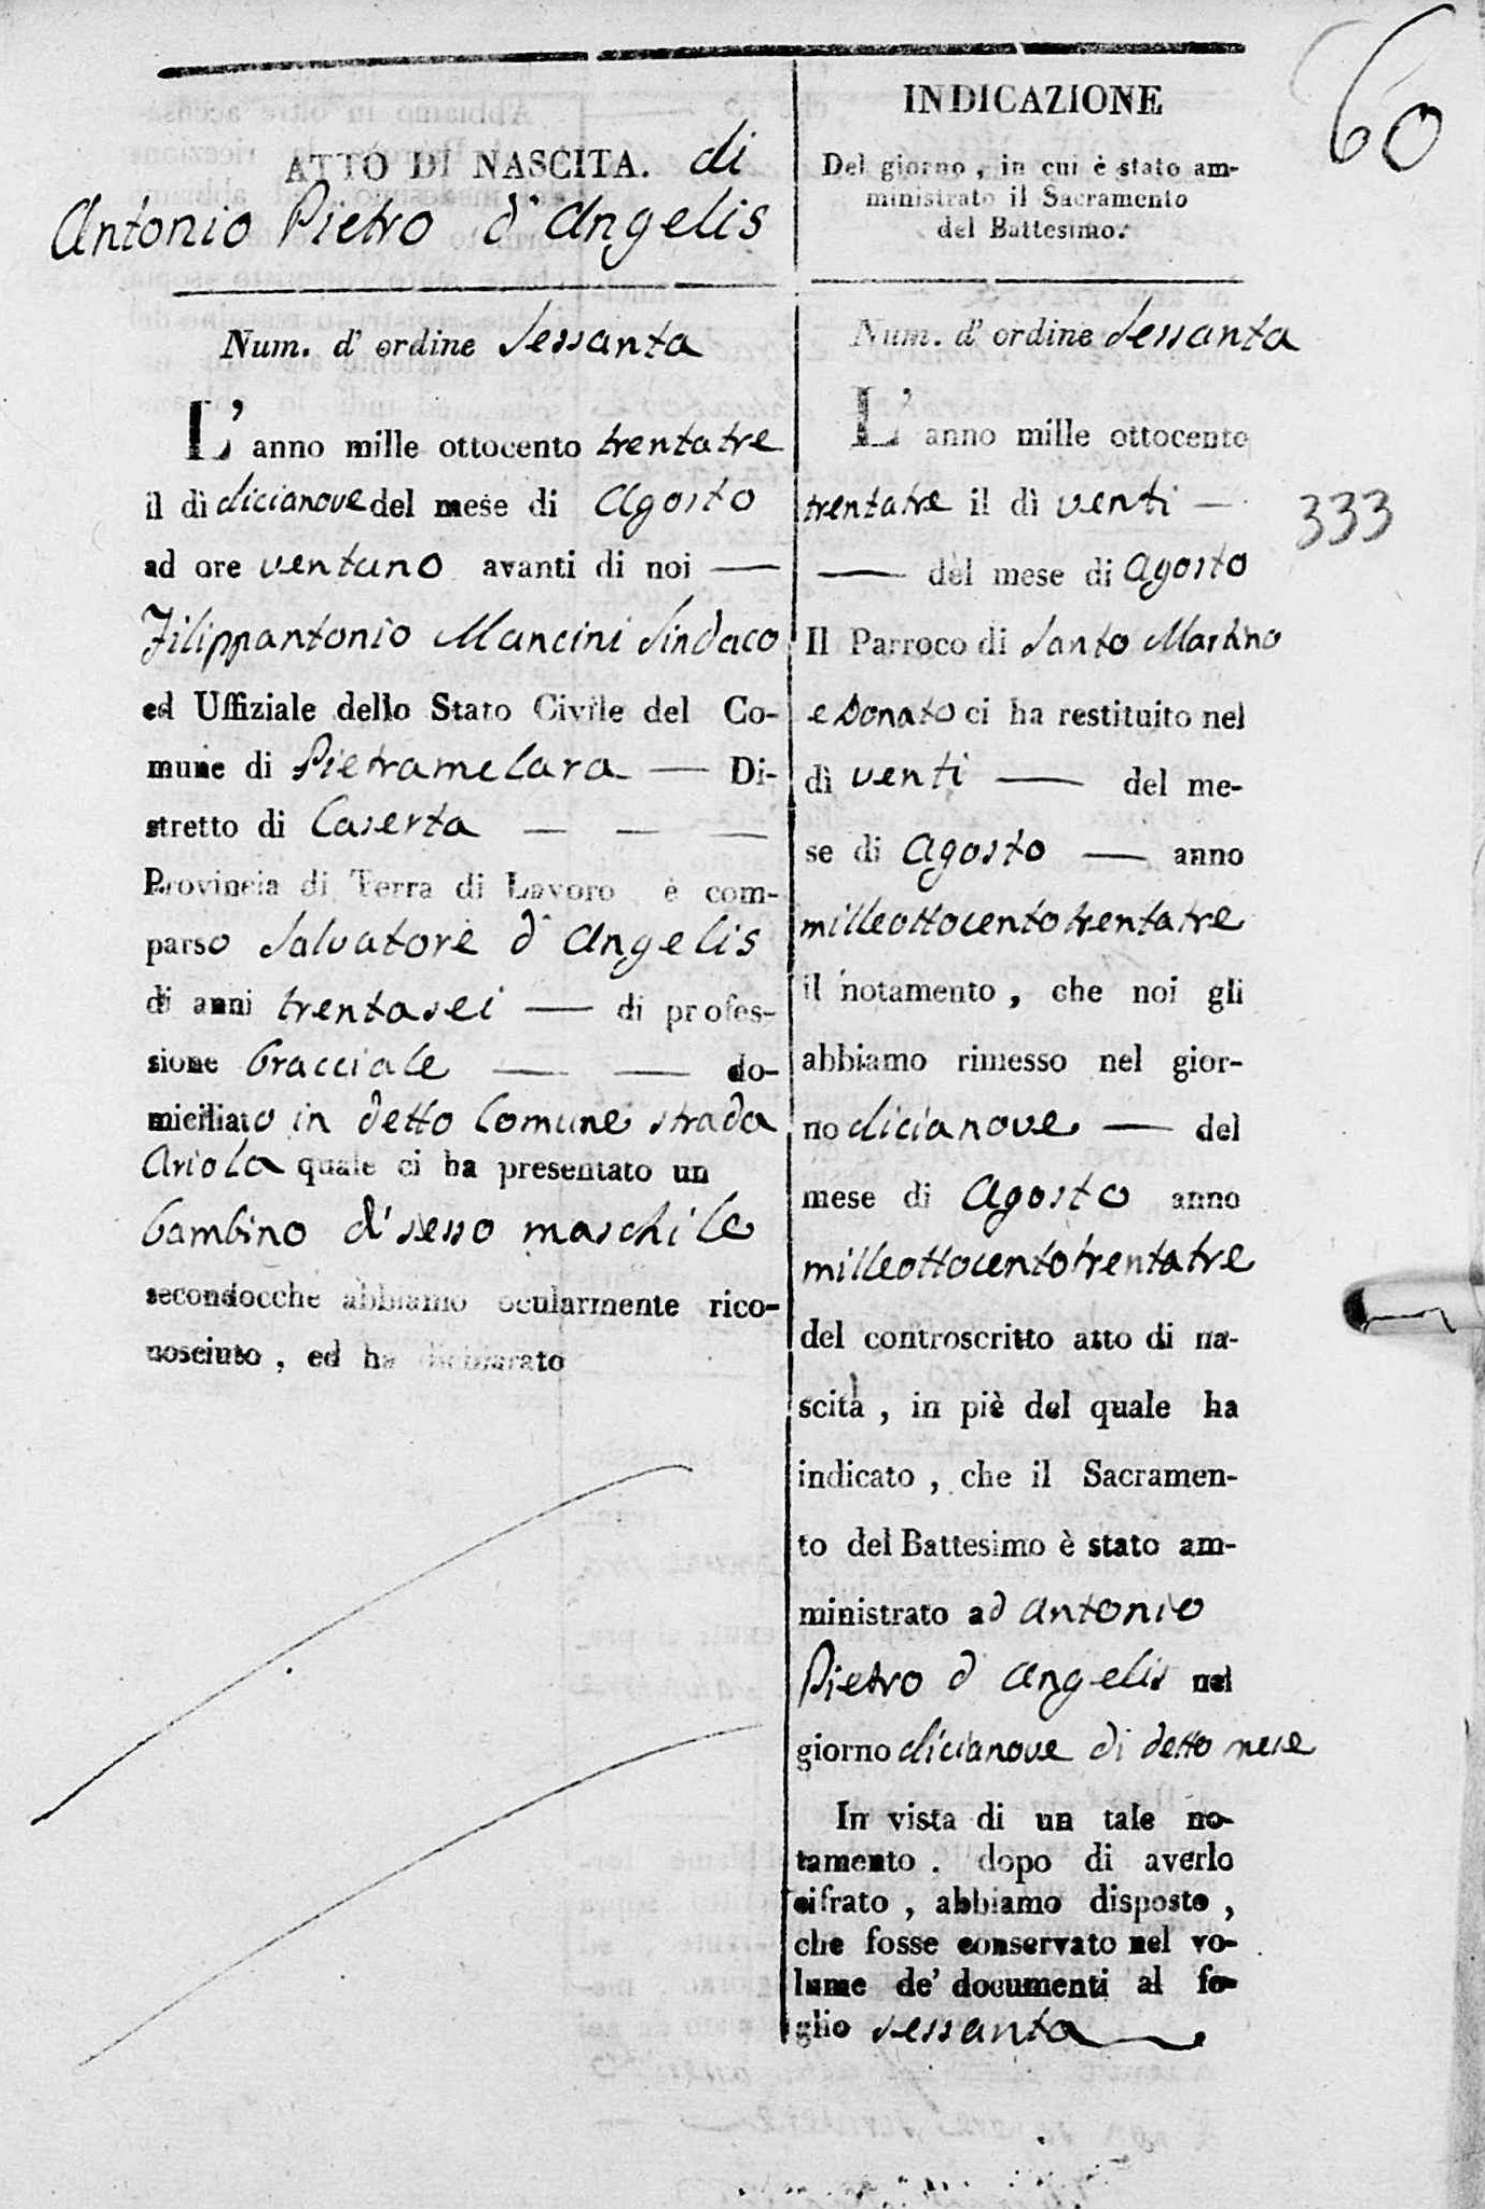 60
ATTO DI NASCITA. di
Antonio Pietro d'Angelis
Num. d' ordine Sessanta
L' anno mille ottocento trentatre
il dì dicianove del mese di Agosto
ad ore ventuno avanti di noi —
Filippantonio Mancini Sindaco
ed Uffiziale dello Stato Civile del Co-
mune di Pietramelara — Di-
stretto di Caserta — — —
Provincia di Terra di Lavoro è com-
parso Salvatore d'Angelis
di anni trentasei — di profes-
sione bracciale — — do-
miciliato in detto Comune strada
Ariola quale ci ha presentato un
bambino di sesso maschile
secondocchè abbiamo ocularmente rico-
nosciuto , ed ha dichiarato
INDICAZIONE
Del giorno , in cui è stato am-
ministrato il Sacramento
del Battesimo.
Num. d' ordine Sessanta
L' anno mille ottocento
trentatre il dì venti —
— del mese di Agosto
Il Parroco di Santo Martino
e Donato ci ha restituito nel
dì venti — del me-
se di Agosto — anno
milleottocentotrentatre
il notamento , che noi gli
abbiamo rimesso nel gior-
no dicianove — del
mese di Agosto anno
milleottocentotrentatre
del controscritto atto di na-
scità , in piè del quale ha
indicato , che il Sacramen-
to del Battesimo è stato am-
ministrato ad Antonio
Pietro d Angelis nel
giorno dicianove di detto mese
In vista di un tale no-
tamento . dopo di averlo
cifrato , abbiamo disposto ,
che fosse conservato nel vo-
lume de' documenti al fo-
glio sessanta
333